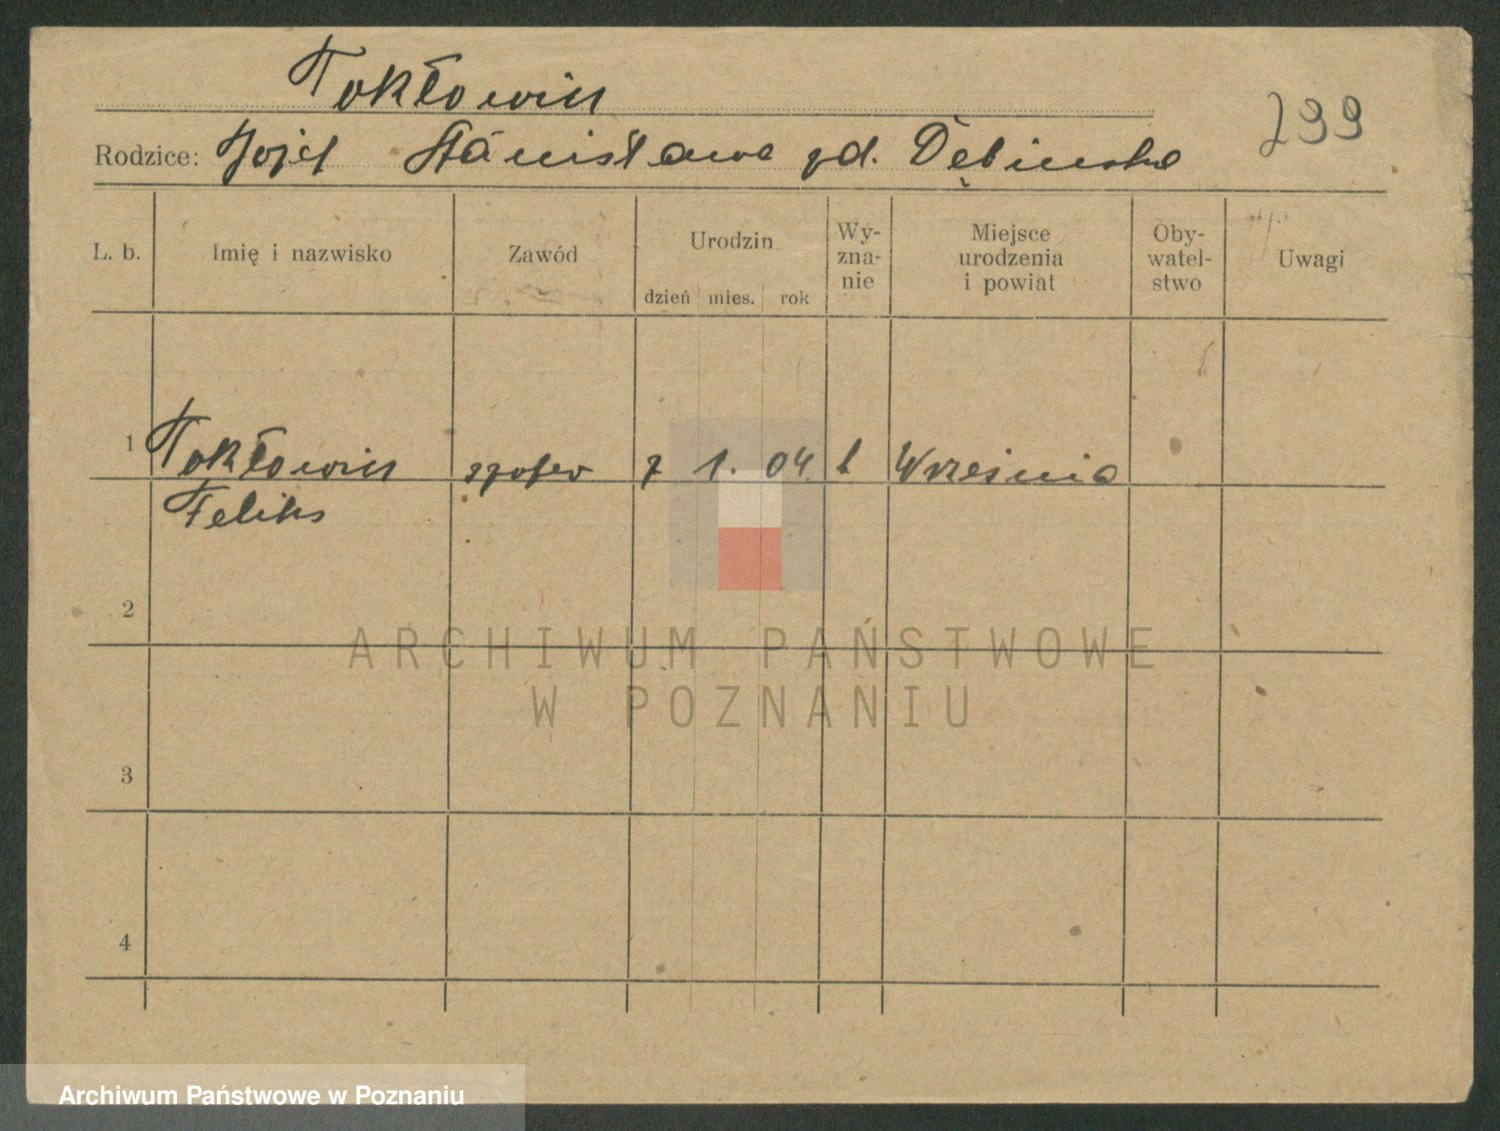 Tokłowicz
799
Rodzice: Józef Stanisława zd. Dębińska
L. b. Imię i nazwisko Zawód Urodzin dzień mies. rok Wy- zna- nie Miejsce urodzenia i powiat Oby- watel- stwo Uwagi
1 Tokłowicz szofer 7 1. 04. Września
Feliks
2
3
4
ARCHIWUM PAŃSTWOWE
W POZNANIU
Archiwum Państwowe w Poznaniu